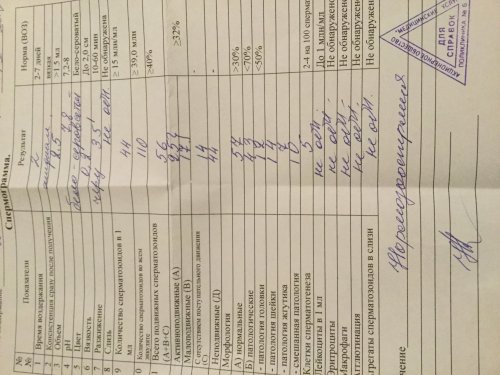 Спермограмма.
№ Показатели Результат Норма (ВОЗ)
1 Время воздержания 2 2-7 дней
2 Консистенция сразу после получения вязкая
3 Объем 2.5 >1.5 мл
4 рН 7.8 7.2-8
5 Цвет Бело-сероватый
6 Вязкость До 2,0 см
7 Разжижение 10-60 мин
8 Слизь не обн. Не обнаружена
9 Количество сперматозоидов в 1 мл 44 ≥ 15 млн/мл
Количество сперматозоидов во всем 110 ≥ 39,0 млн
Всего подвижных сперматозоидов (А+В+С) 56 ≥40%
Активноподвижные (А) ≥32%
Малоподвижные (В) -
С отсутствием поступательного движения (С) -
Неподвижные (Д) 44 -
Морфология
А) нормальные 57 >30%
Б) патологические 43 <70%
- патология головки <50%
- патология шейки
- патология жгутика 7
- смешанная патология 0
Клетки сперматогенеза 5 2-4 на 100 сперма
Лейкоциты в 1 мл не обн. До 1 млн/мл
Эритроциты не обн. Не обнаружено
Макрофаги не обн. Не обнаружено
Агглютинация не обн. Не обнаружено
сперматозоидов в слизи не обн. Не обнаружено
Нормозооспермия
АКЦИОНЕРНОЕ ОБЩЕСТВО
ДЛЯ СПРАВОК
ПОЛИКЛИНИКА № 6